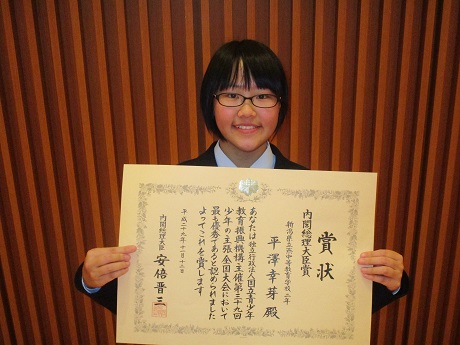 賞状
内閣総理大臣賞
新潟県立燕中等教育学校二年
平澤幸芽殿
あなたは独立行政法人国立青少年
教育振興機構主催第三十九回
少年の主張全国大会において
最も優秀であると認められました
よってこれを賞します
平成二十九年十一月十二日
内閣総理大臣 安倍晋三